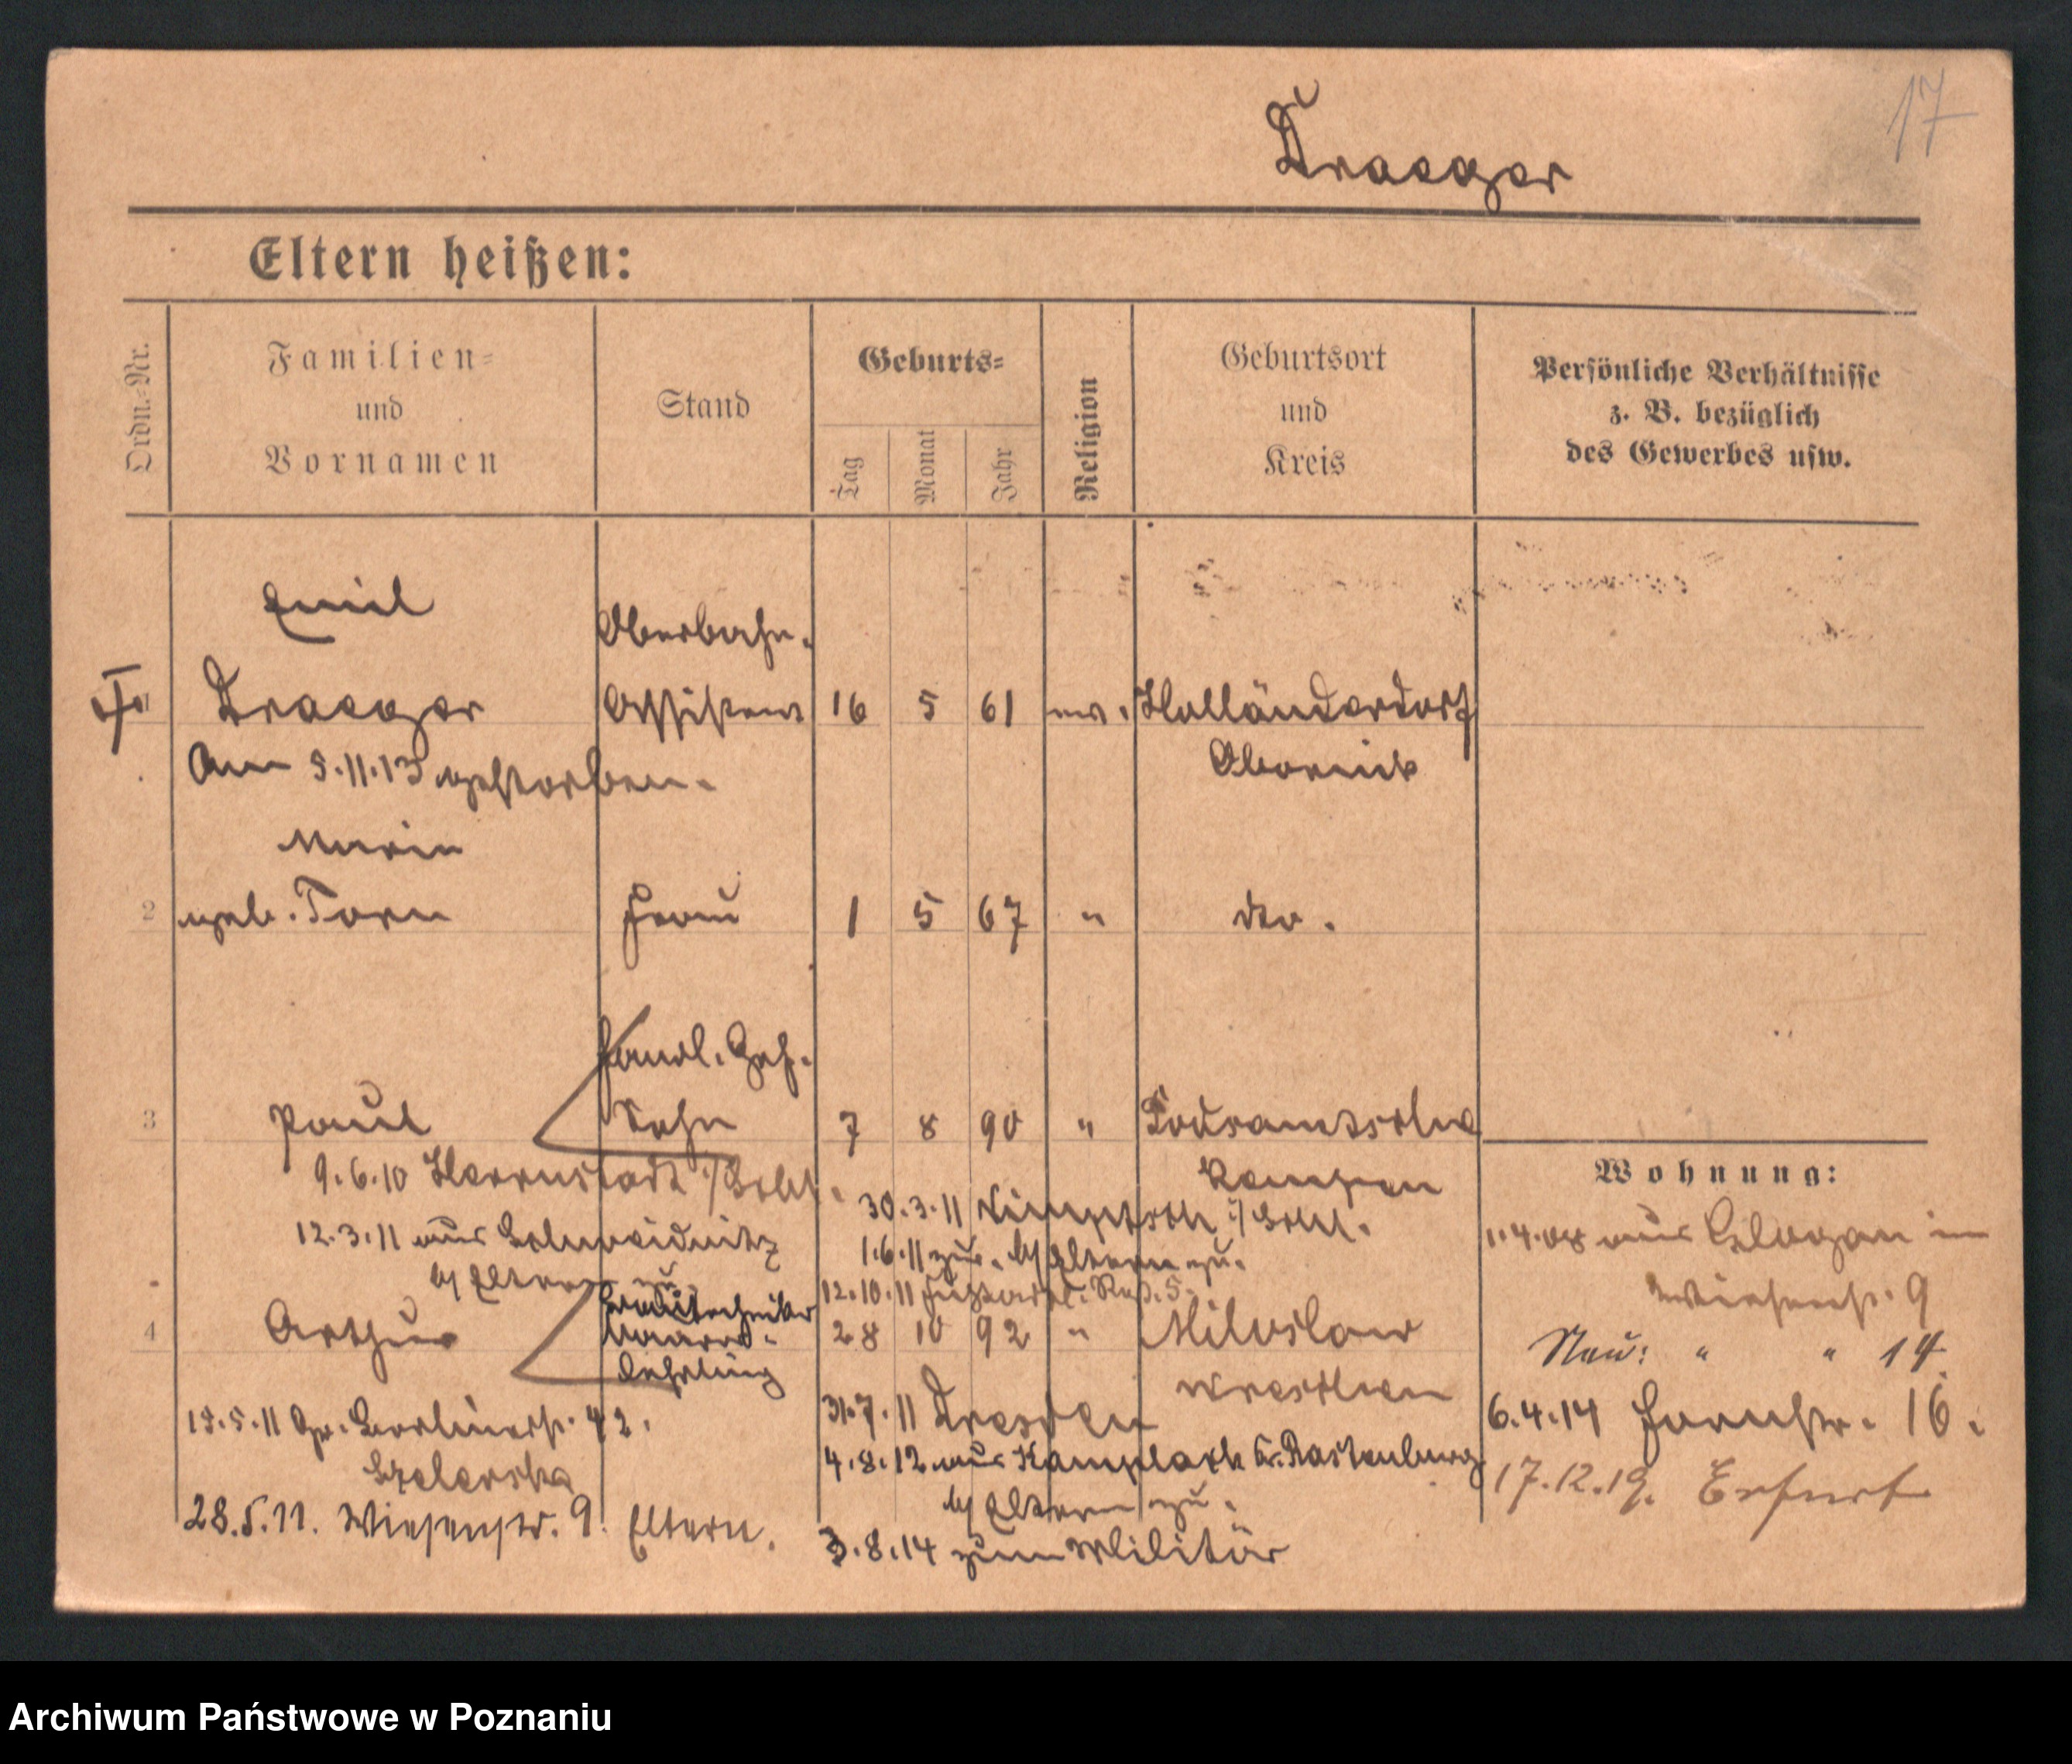 17
Draeger
Eltern heißen:
Ordn.-Nr.
Familien-
und
Vornamen
Stand
Geburts-
Tag
Monat
Jahr
Religion
Geburtsort
und
Kreis
Persönliche Verhältnisse
z. B. bezüglich
des Gewerbes usw.
Emil
Oberbahn-
Draeger
Assistent
16 5 61 ev. Holländerdorf
Am 5.11.13 gestorben.
Obornik
Marie
2 geb. Torn Frau 1 5 67 " do.
Handl. Geh.
3 Paul Sohn 7 8 90 "
Kempen
9.6.10 Herrnstadt i/Schl.
30.3.11 Nimptsch i/Schl.
12.3.11 aus Schweidnitz
1.6.11 zur. b/ Eltern zu.
b/ Eltern zu.
12.10.11 Reg. 5.
Bautechniker
4 Arthur
28 10 92 " Miloslaw
Lehrling
Wreschen
15.5.11 Gr. Berlinerstr. 42.
31.7.11 Dresden
4.8.12 aus Kr. Rastenburg
b/ Eltern zu.
28.5.11. Wiesenstr. 9. Eltern.
3.8.14 zum Militär
Wohnung:
1.4.08 aus Glogau in
Wiesenstr. 9
Neu: " " 14
6.4.14 16.
17.12.19. Erfurt
Archiwum Państwowe w Poznaniu